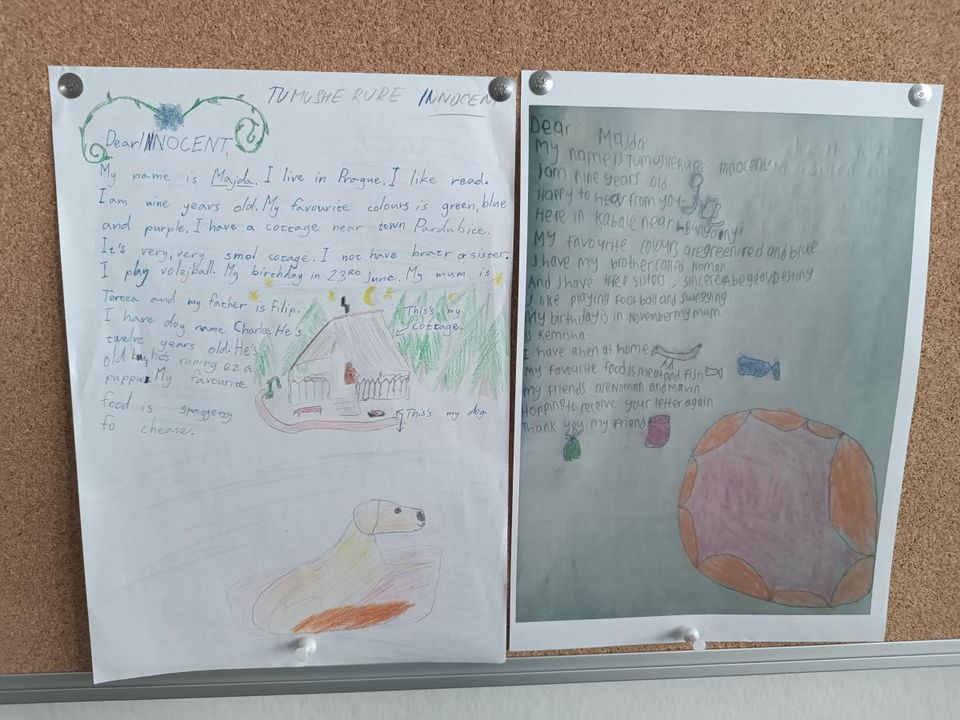 TUMUSHE RURE INNOCEN
Dear INNOCENT,
My name is Majda. I live in Prague. I like read.
I am nine years old. My favourite colours is green, blue
and purple. I have a cottage near town Pardubice.
It's very, very smol cotage. I not have bratr or sister.
I play volejball. My birthday in 23RD June. My mum is
Tereza and my father is Filip.
I have dog name Charles. He's
twelve years old. He's
old he's runing ez a
puppie. My favourite
food is spaggety
fo chease.
This's my
cottage.
This's my dog.
Dear Majda
My name is TUMUSHERURE Innocent
I am nine years old
Happy to hear from you
Here in Kabale near Bunyonyi
My favourite colours are green red and blue
I have my brother canal Noman
And I have three sisters, sincere Abegeal Destiny
I like playing football and swinging
My birthday is in November my mum
is Kemisha
I have a hen at home
my favourite food is meat and fish
my friends are Noman and Mavin
Hopping to receive your letter again
Thank you my friend